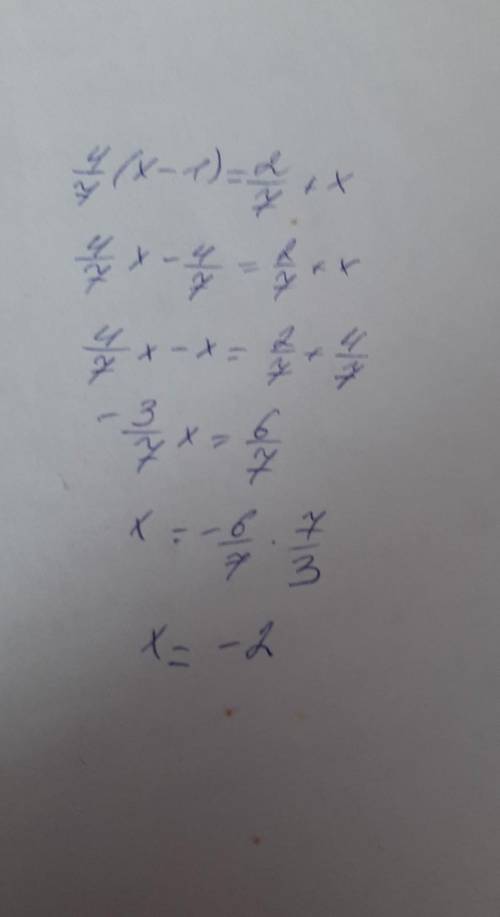 4/7 (x - 1) = 2/7 + x
4/7 x - 4/7 = 2/7 + x
4/7 x - x = 2/7 + 4/7
- 3/7 x = 6/7
x = - 6/7 · 7/3
x = - 2